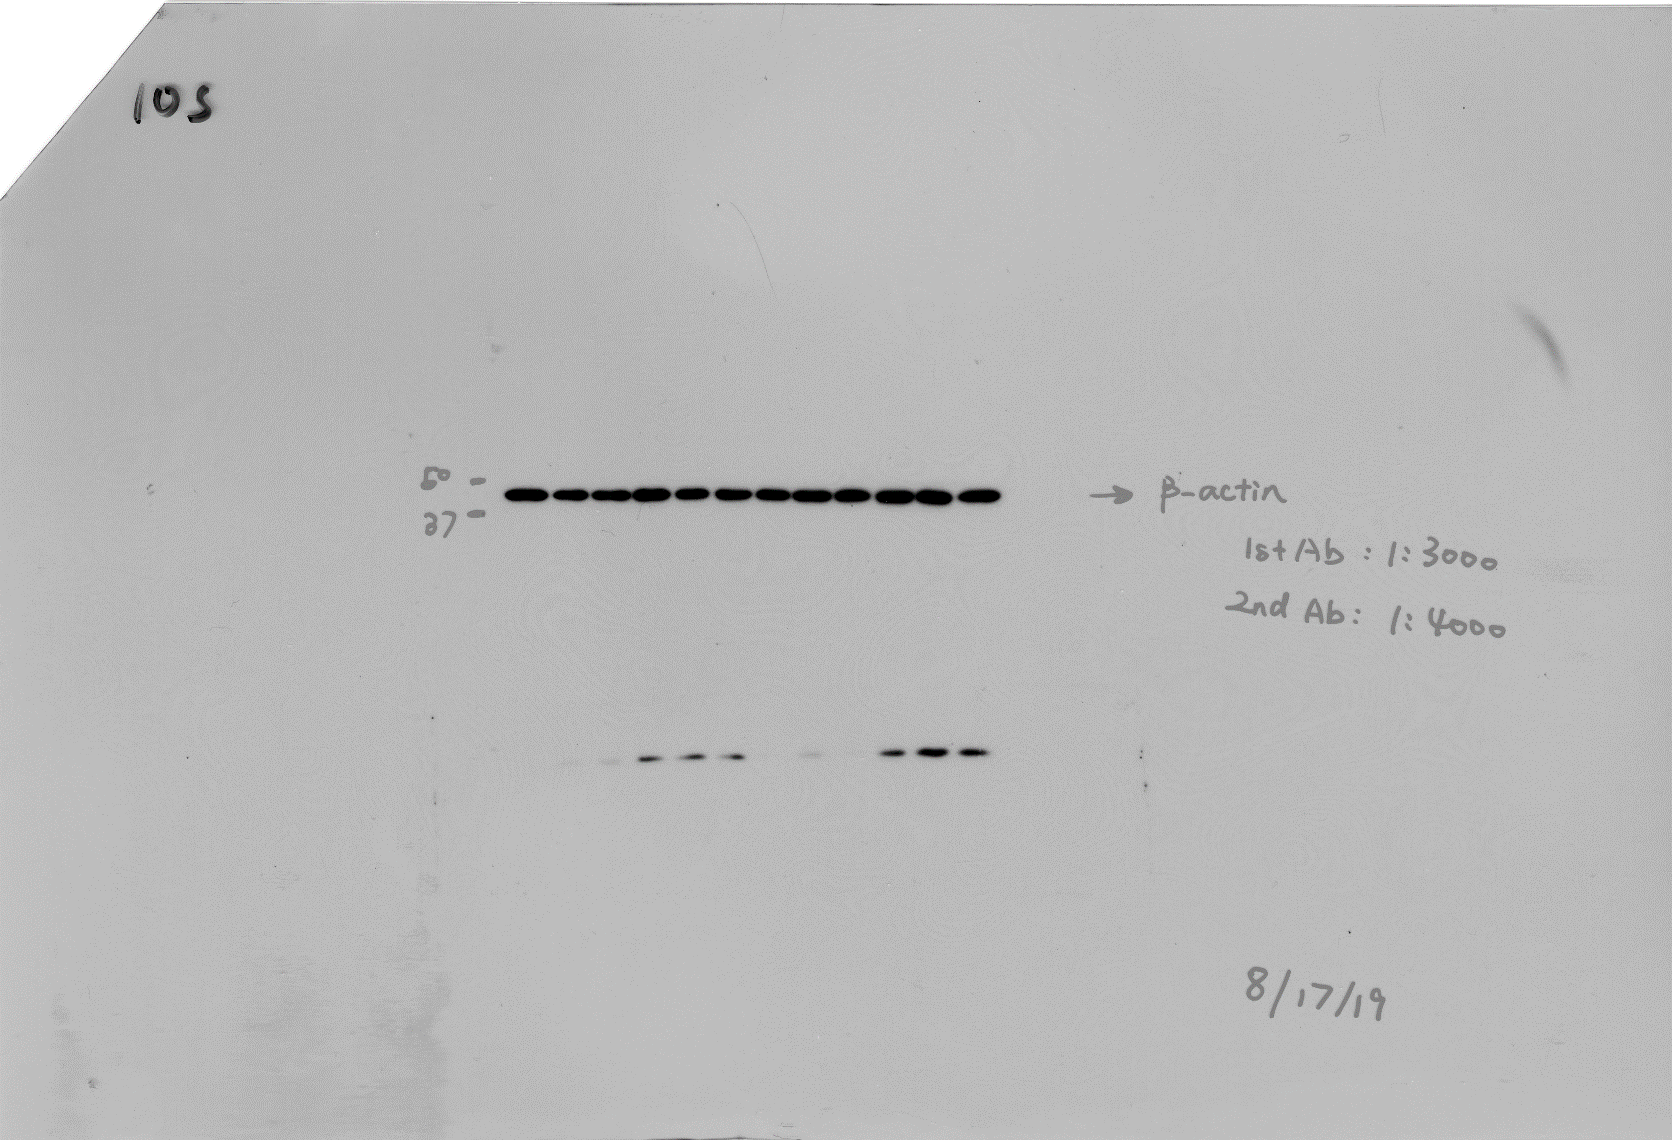 10s
50 -
37 -
→ β-actin
1st Ab : 1:3000
2nd Ab : 1:4000
8/17/19